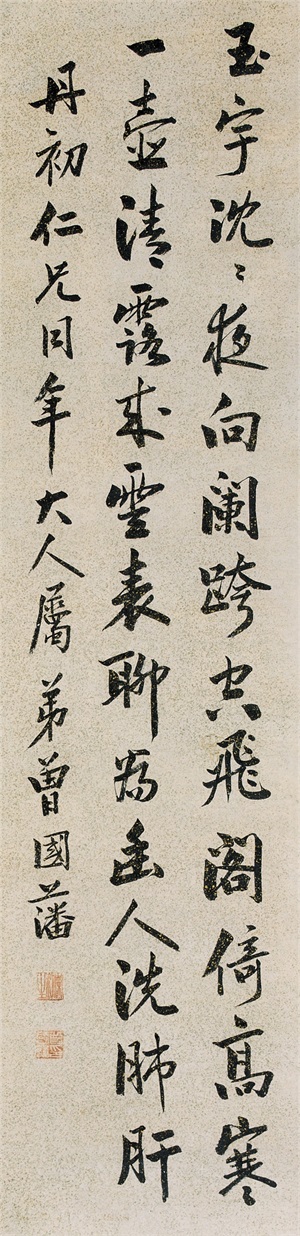 玉宇沈沈夜向闌跨空飛閣倚高寒
一壺清露來雲表聊為幽人洗肺肝
丹初仁兄同年大人屬弟曾國藩